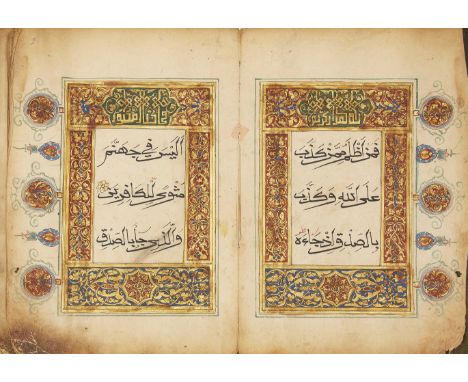 فمن اظلم ممن كذب
على الله وكذب
بالصدق اذ جاءه
اليس في جهنم
مثوى للكافرين
والذي جا بالصدق